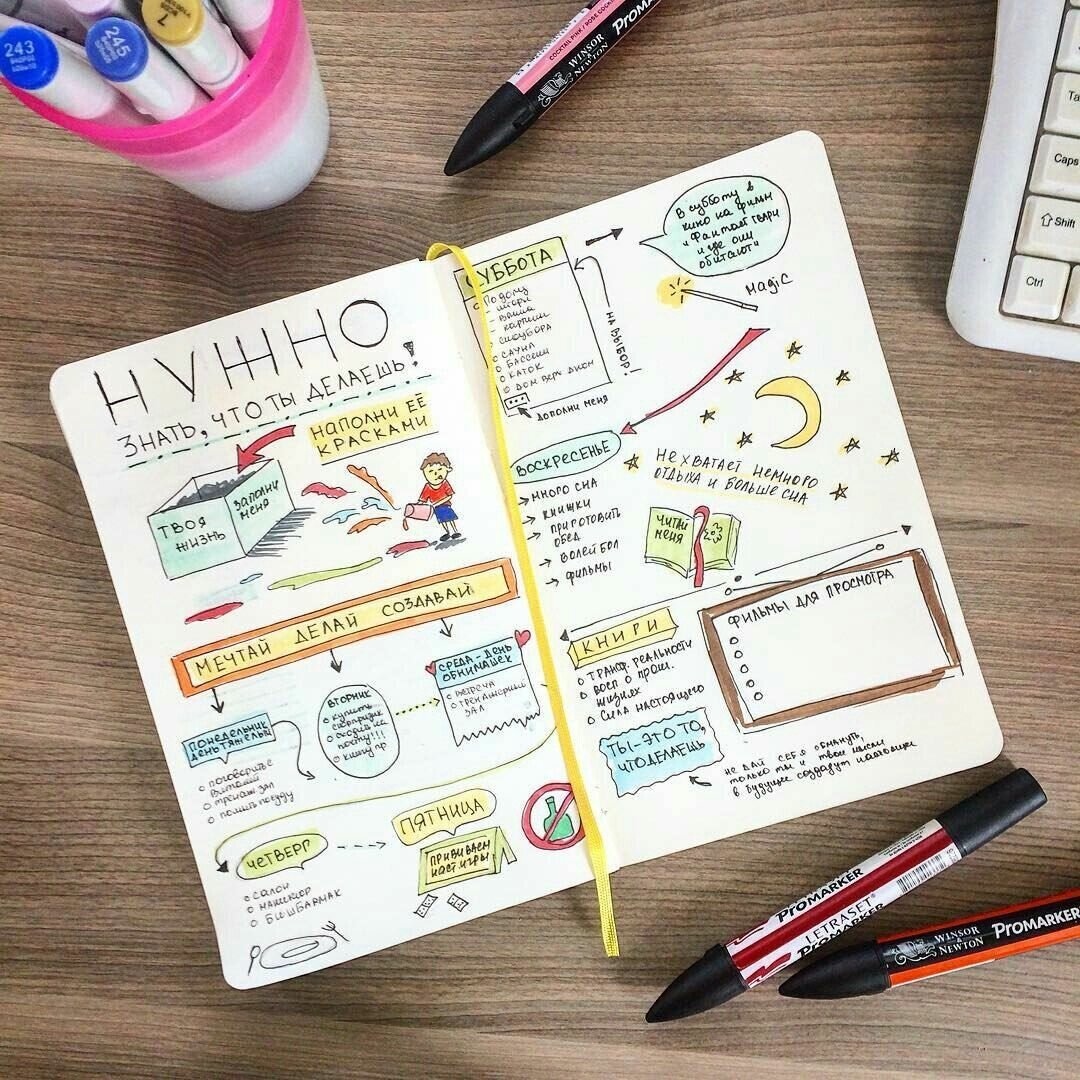 НУЖНО
ЗНАТЬ, ЧТО ТЫ ДЕЛАЕШЬ!
НАПОЛНИ ЕЁ
КРАСКАМИ
ТВОЯ
ЖИЗНЬ
ЗАПОЛНИ
МЕНЯ
МЕЧТАЙ ДЕЛАЙ СОЗДАВАЙ
ПОНЕДЕЛЬНИК
ДЕНЬ ТЯЖЕЛЫЙ
поговорить с
тренаж зал
помыть посуду
ВТОРНИК
купить
почту!!!
СРЕДА - ДЕНЬ
ОБНИМАШЕК
встреча
тренажерный
зал
ЧЕТВЕРГ
САЛОН
МАНИКЮР
БИШБАРМАК
ПЯТНИЦА
НАСТ ИГРЫ
СУББОТА
По дому
- шторы
- ванна
- картины
САУНА
БАССЕИН
КАТОК
ДОМ ВЕРХ ДНОМ
...
ДОПОЛНИ МЕНЯ
НА ВЫБОР!
В субботу в
кино на фильм
"Фантаст твари
и где они
обитают"
Magic
ВОСКРЕСЕНЬЕ
МНОГО СНА
КНИЖКИ
ПРИГОТОВИТЬ
ОБЕД
ВОЛЕЙБОЛ
ФИЛЬМЫ
НЕ ХВАТАЕТ НЕМНОГО
ОТДЫХА И БОЛЬШЕ СНА
ЧИТАЙ
МЕНЯ
КНИГИ
ТРАНСФ. РЕАЛЬНОСТИ
ВОСП О ПРОШ.
ЖИЗНЯХ
СИЛА НАСТОЯЩЕГО
ФИЛЬМЫ ДЛЯ ПРОСМОТРА
ТЫ - ЭТО ТО,
ЧТО ДЕЛАЕШЬ
НЕ ДАЙ СЕБЯ ОБМАНУТЬ,
только ты и твои мысли
в будущее создадут настоящее
243
245
7
COCKTAIL PINK / ROSE COCK
WINSOR & NEWTON
ProMARKER
ProMARKER
LETRASET
ProMARKER
WINSOR & NEWTON
ProMARKER
Ta
Caps
Shift
Ctrl